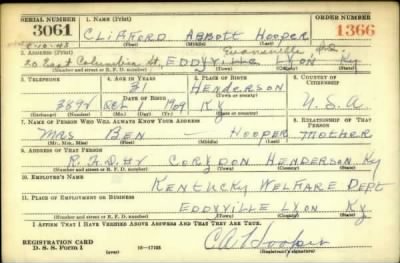 SERIAL NUMBER
3061
1. NAME (Print)
CLIFFORD ABBOTT HOOPER
(First) (Middle) (Last)
ORDER NUMBER
1366
2. ADDRESS (Print)
Evansville Ind.
20 East Columbia St, EDDYVILLE LYON Ky
(Number and street or R. F. D. number) (Town) (County) (State)
3. TELEPHONE
4. AGE IN YEARS
31
5. PLACE OF BIRTH
HENDERSON
(Town or county)
6. COUNTRY OF CITIZENSHIP
U.S.A
DATE OF BIRTH
1909
Ky
(Mo.) (Day) (Yr.)
(State or country)
7. NAME OF PERSON WHO WILL ALWAYS KNOW YOUR ADDRESS
MRS BEN — HOOPER
(Mr., Mrs., Miss) (First) (Middle) (Last)
8. RELATIONSHIP OF THAT PERSON
MOTHER
9. ADDRESS OF THAT PERSON
CORYDON HENDERSON Ky
(Number and street or R. F. D. number) (Town) (County) (State)
10. EMPLOYER'S NAME
KENTUCKY WELFARE DEPT
11. PLACE OF EMPLOYMENT OR BUSINESS
EDDYVILLE LYON Ky
(Number and street or R. F. D. number) (Town) (County) (State)
I AFFIRM THAT I HAVE VERIFIED ABOVE ANSWERS AND THAT THEY ARE TRUE.
REGISTRATION CARD
D. S. S. Form 1
(over)
C A Hooper
(Registrant's signature)